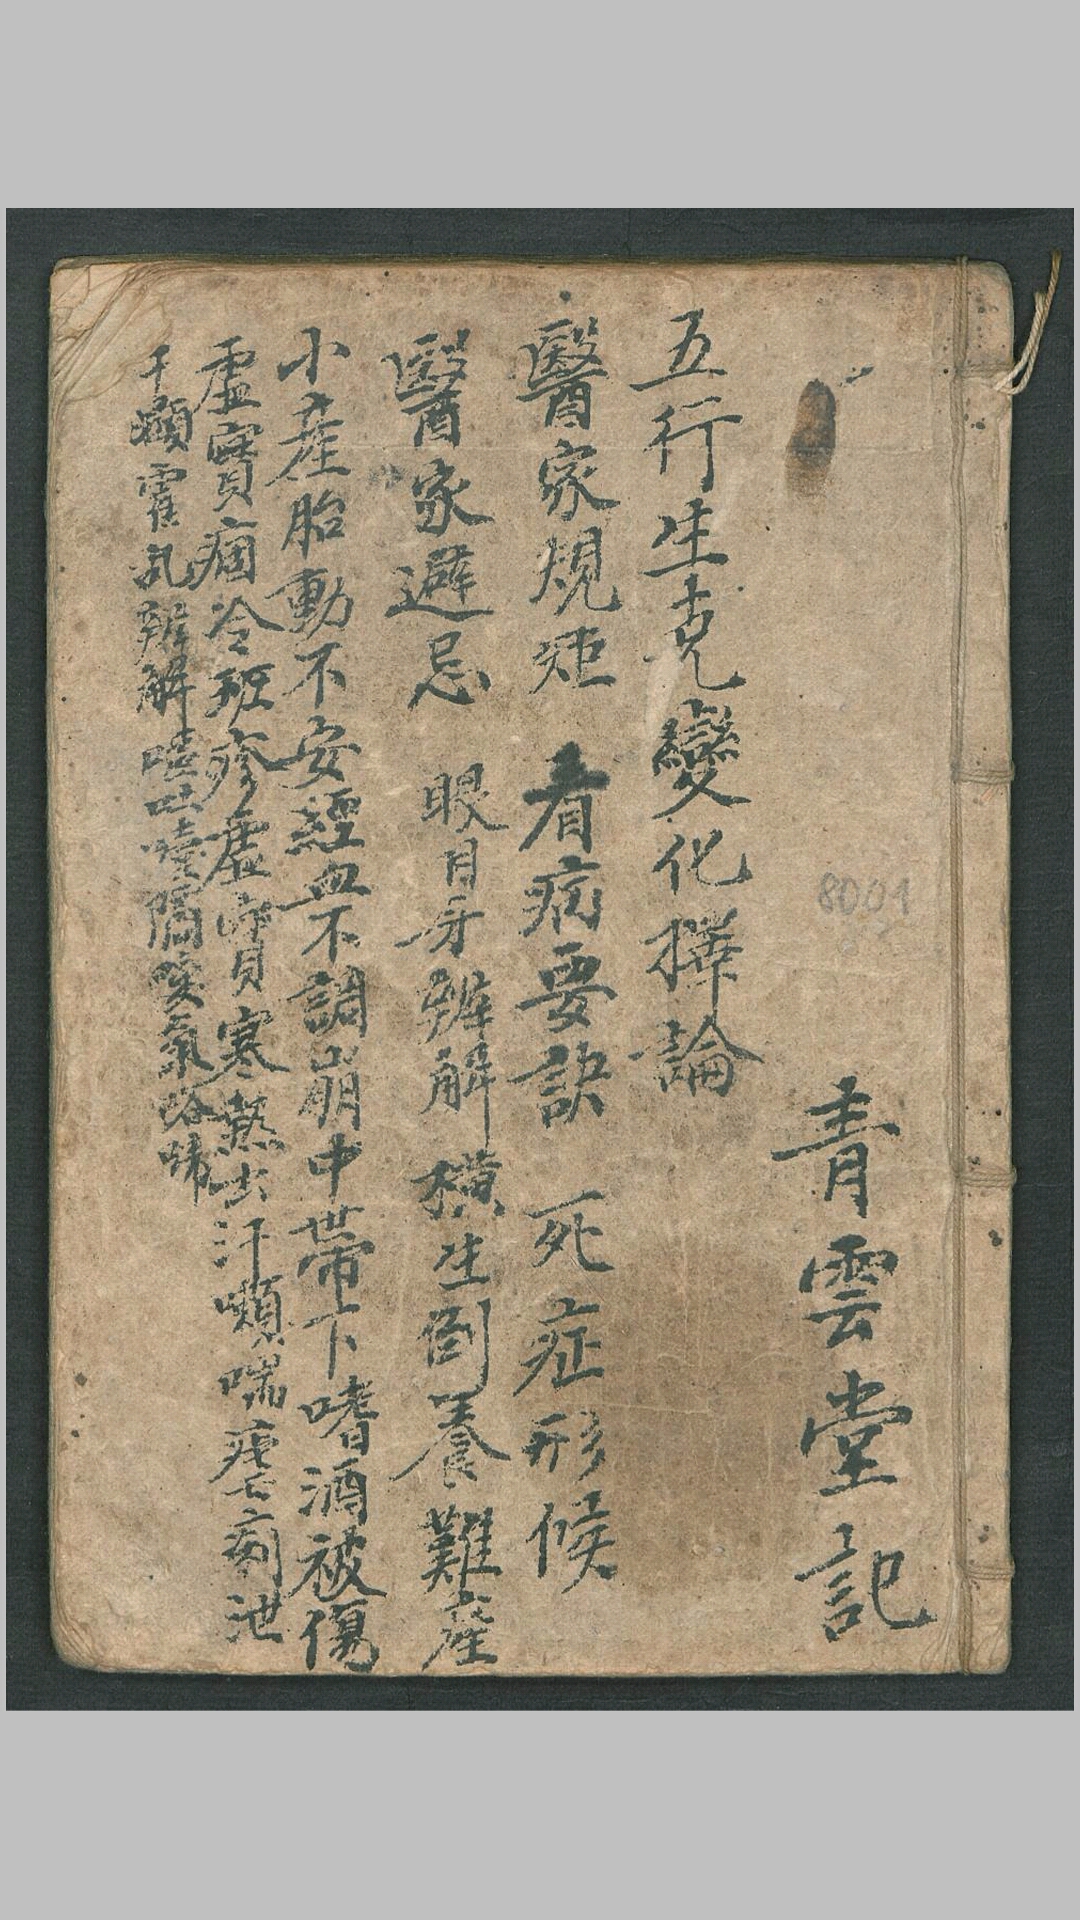 青雲堂記
五行生克變化擇論
醫家規矩 看病要訣 死症形候
醫家避忌 眼目牙辨解 橫生倒養難產
小產胎動不安經血不調崩中帶下嗜酒被傷
虛實痼冷班疹虛實寒熱出汗嗽喘瘧痢泄
干癲霍乱辨解 吐 隔 氣
8001